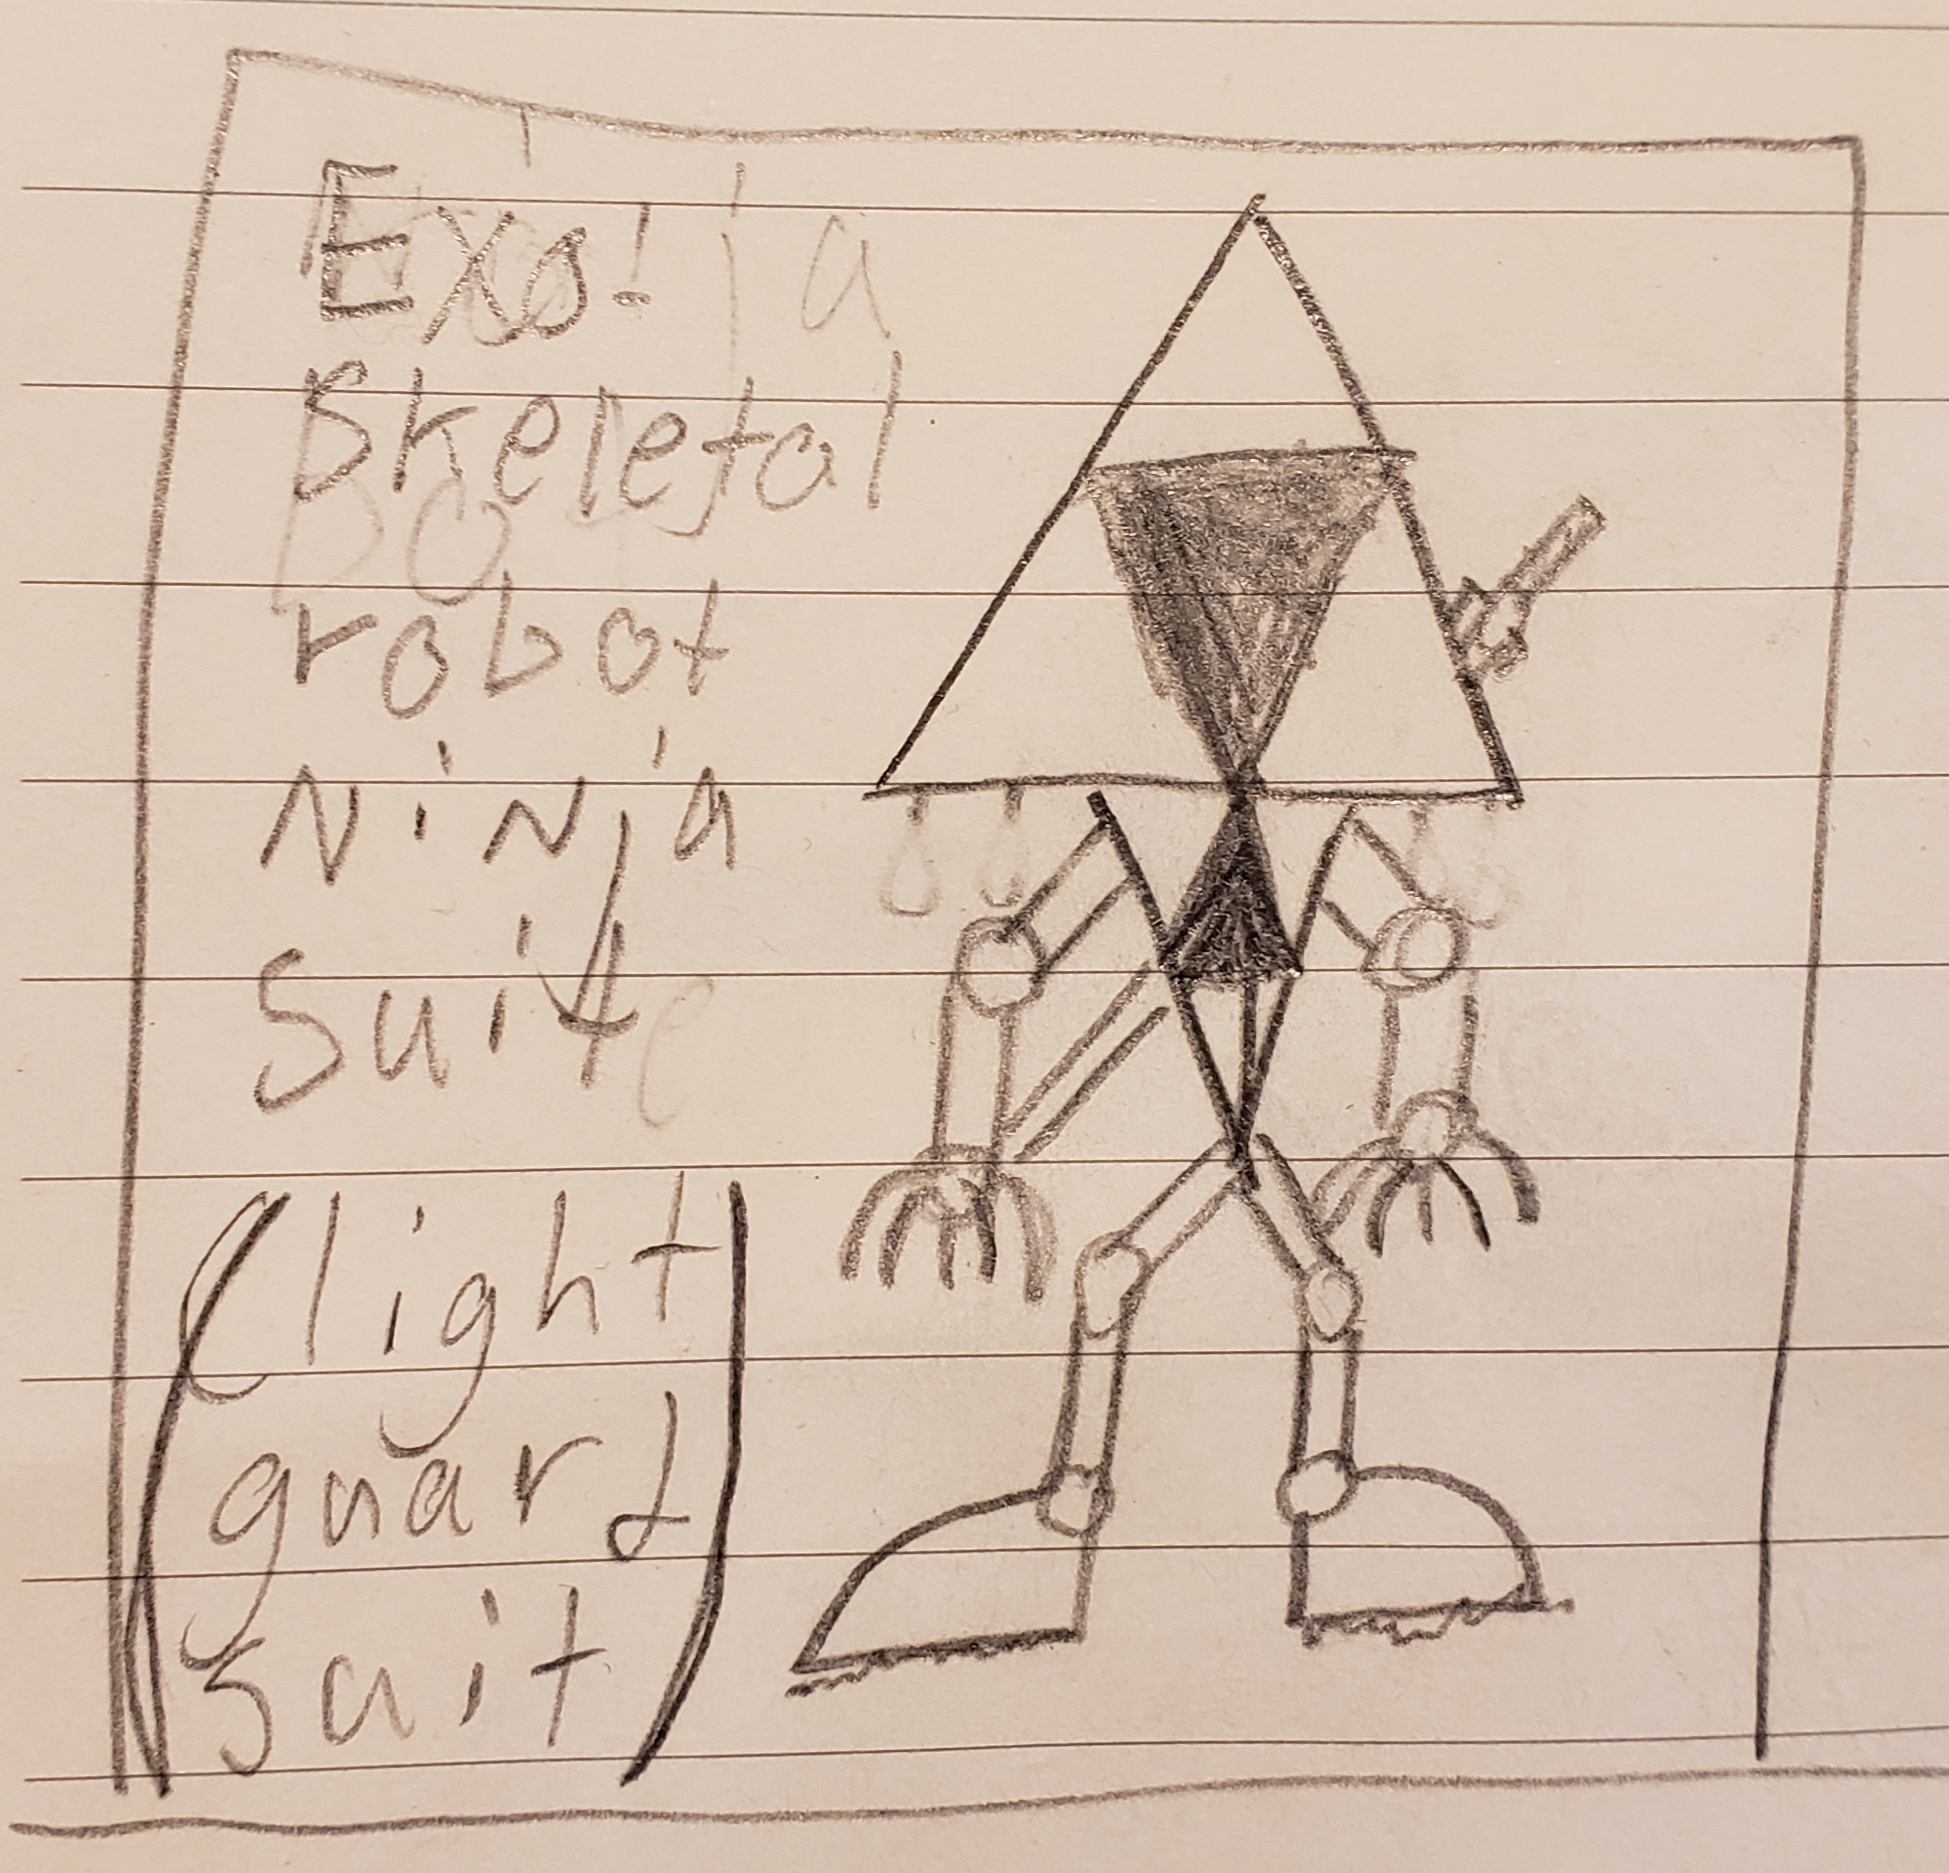 Exo!
Skeletal
robot
Ninja
Suit
(light
guard
suit)